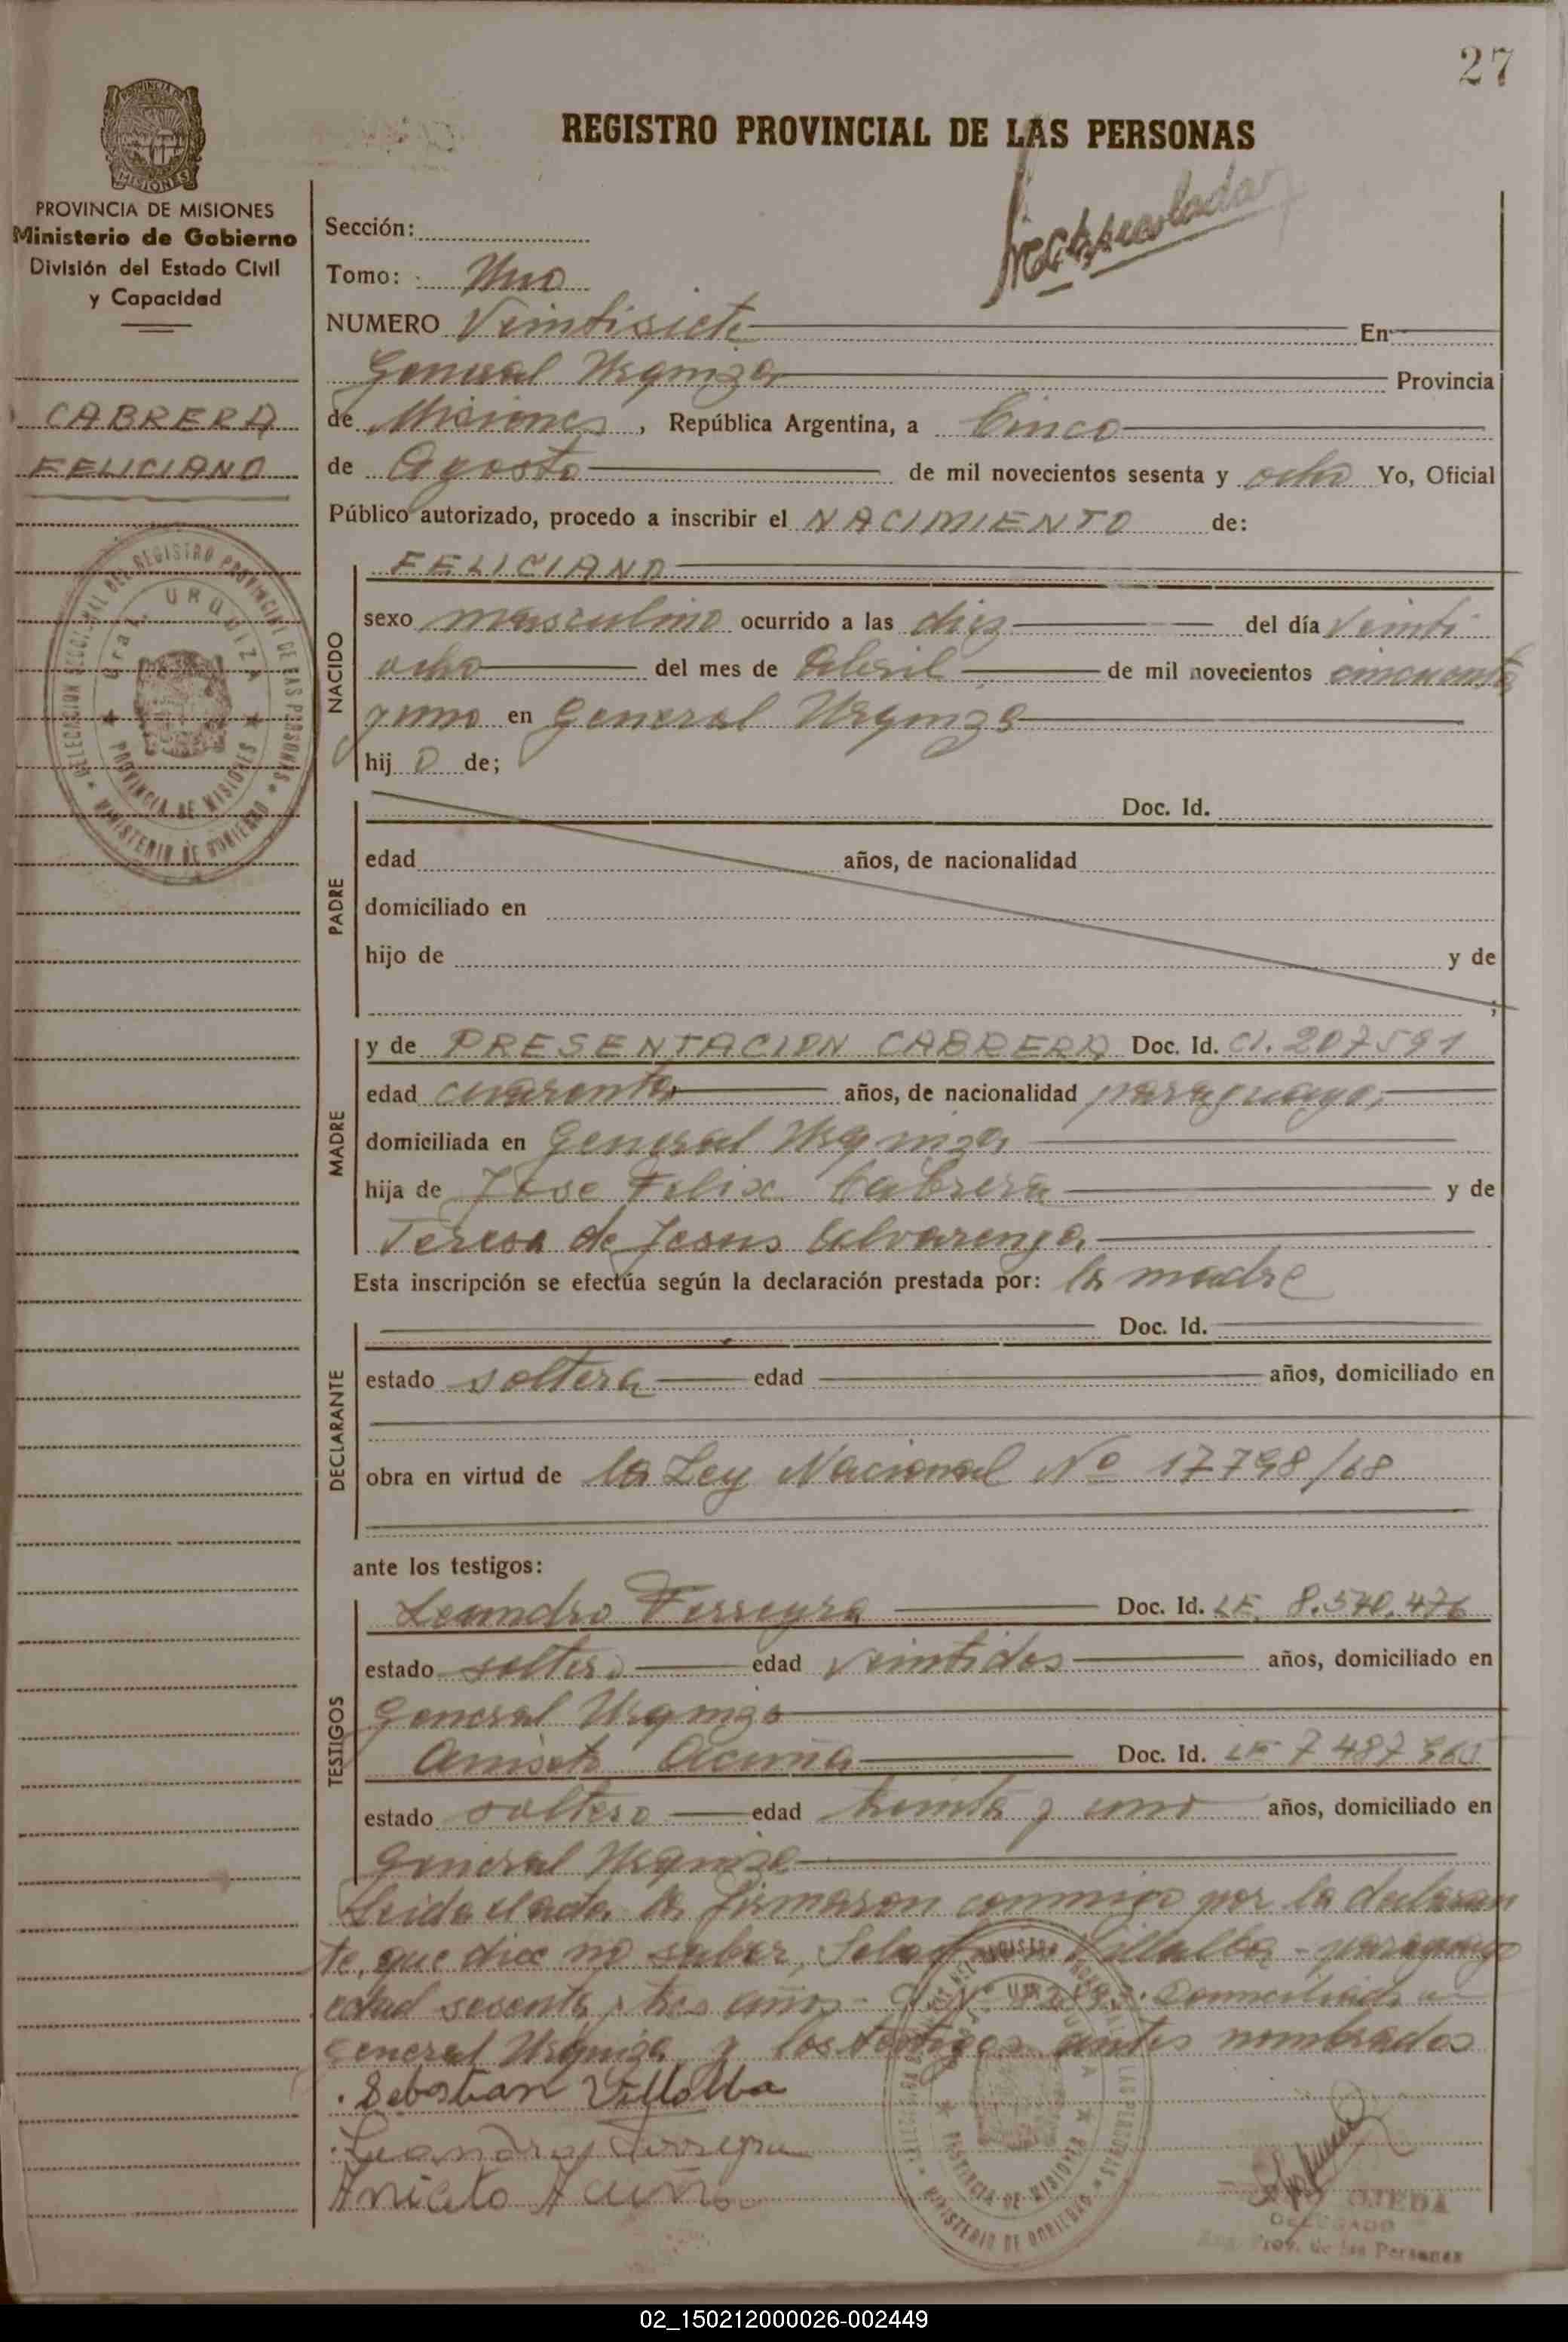 27
REGISTRO PROVINCIAL DE LAS PERSONAS
PROVINCIA DE MISIONES
Ministerio de Gobierno
División del Estado Civil
y Capacidad
CABRERA
FELICIANO
Sección:
Tomo: Uno
NUMERO Veintisiete En
General Urquiza Provincia
de Misiones, República Argentina, a Cinco
de Agosto de mil novecientos sesenta y ocho Yo, Oficial
Público autorizado, procedo a inscribir el NACIMIENTO de:
NACIDO
FELICIANO
sexo masculino ocurrido a las diez del día veinti
ocho del mes de Abril de mil novecientos cincuenta
y uno en General Urquiza
hij o de;
PADRE
Doc. Id.
edad años, de nacionalidad
domiciliado en
hijo de y de
;
MADRE
y de PRESENTACION CABRERA Doc. Id. CI. 207591
edad cuarenta años, de nacionalidad paraguaya,
domiciliada en General Urquiza
hija de Jose Felix Cabrera y de
Teresa de Jesus Alvarenga
Esta inscripción se efectúa según la declaración prestada por: la madre
DECLARANTE
Doc. Id.
estado soltera edad años, domiciliado en
obra en virtud de la Ley Nacional Nº 17798/68
ante los testigos:
TESTIGOS
Leandro Ferreyra Doc. Id. LE. 8.540.476
estado soltero edad veintidos años, domiciliado en
General Urquiza
Aniseto Acuña Doc. Id. LE 7487
estado soltero edad treinta y uno años, domiciliado en
General Urquiza
Leida el acta la firmaron conmigo por la declaran
te, que dice no saber, Villalba - paraguayo
edad sesenta y tres años - CI Nº Domiciliado en
General Urquiza y los testigos antes nombrados
Sebastian Villalba
Leandro Ferreyra
Anicto Acuña
OJEDA
DELEGADO
Reg. Prov. de las Personas
DELEGACION SECCIONAL DEL REGISTRO PROVINCIAL DE LAS PERSONAS
Gral. URQUIZA
PROVINCIA DE MISIONES
MINISTERIO DE GOBIERNO
02_150212000026-002449